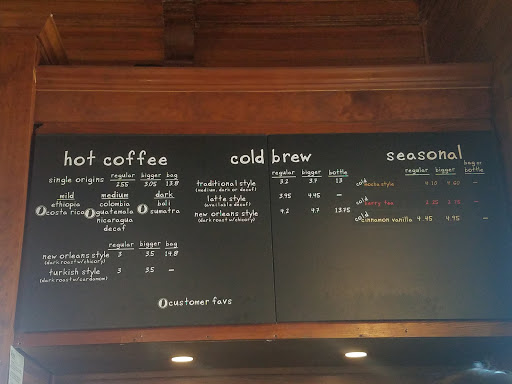 hot coffee
regular bigger bag
single origins 2.55 3.05 13.8
mild medium dark
ethiopia colombia bali
costa rica guatemala sumatra
nicaragua
decaf
regular bigger bag
new orleans style 3 3.5 14.8
(dark roast w/chicory)
turkish style 3 3.5 —
(dark roast w/cardamom)
customer favs
cold brew
regular bigger bottle
traditional style 3.2 3.7 13
(medium, dark or decaf)
latte style 3.95 4.45 —
(available decaf)
new orleans style 4.2 4.7 13.75
(dark roast w/chicory)
seasonal
regular bigger bag or bottle
cold mocha style 4.10 4.60 —
cold —
cold cinnamon vanilla 4.45 4.95 —